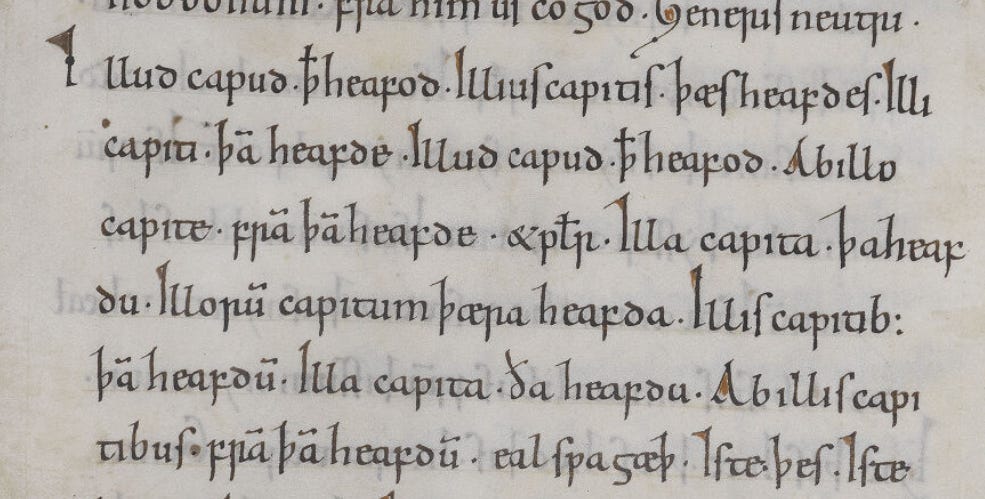 god · Generis neutri ·
Illud capud · ꝥ heafod · Illius capitis · þæs heafdes · Illi
capiti · þā heafde · Illud capud · ꝥ heafod · Ab illo
capite · frā þā heafde · & płr · Illa capita · þa heaf
du · Illorū capitum þæra heafda · Illis capitib:
þā heafdū · Illa capita · ða heafdu · Ab illis capi
tibus · frā þā heafdū · eal sƿa gæþ · Iste · þes · Iste